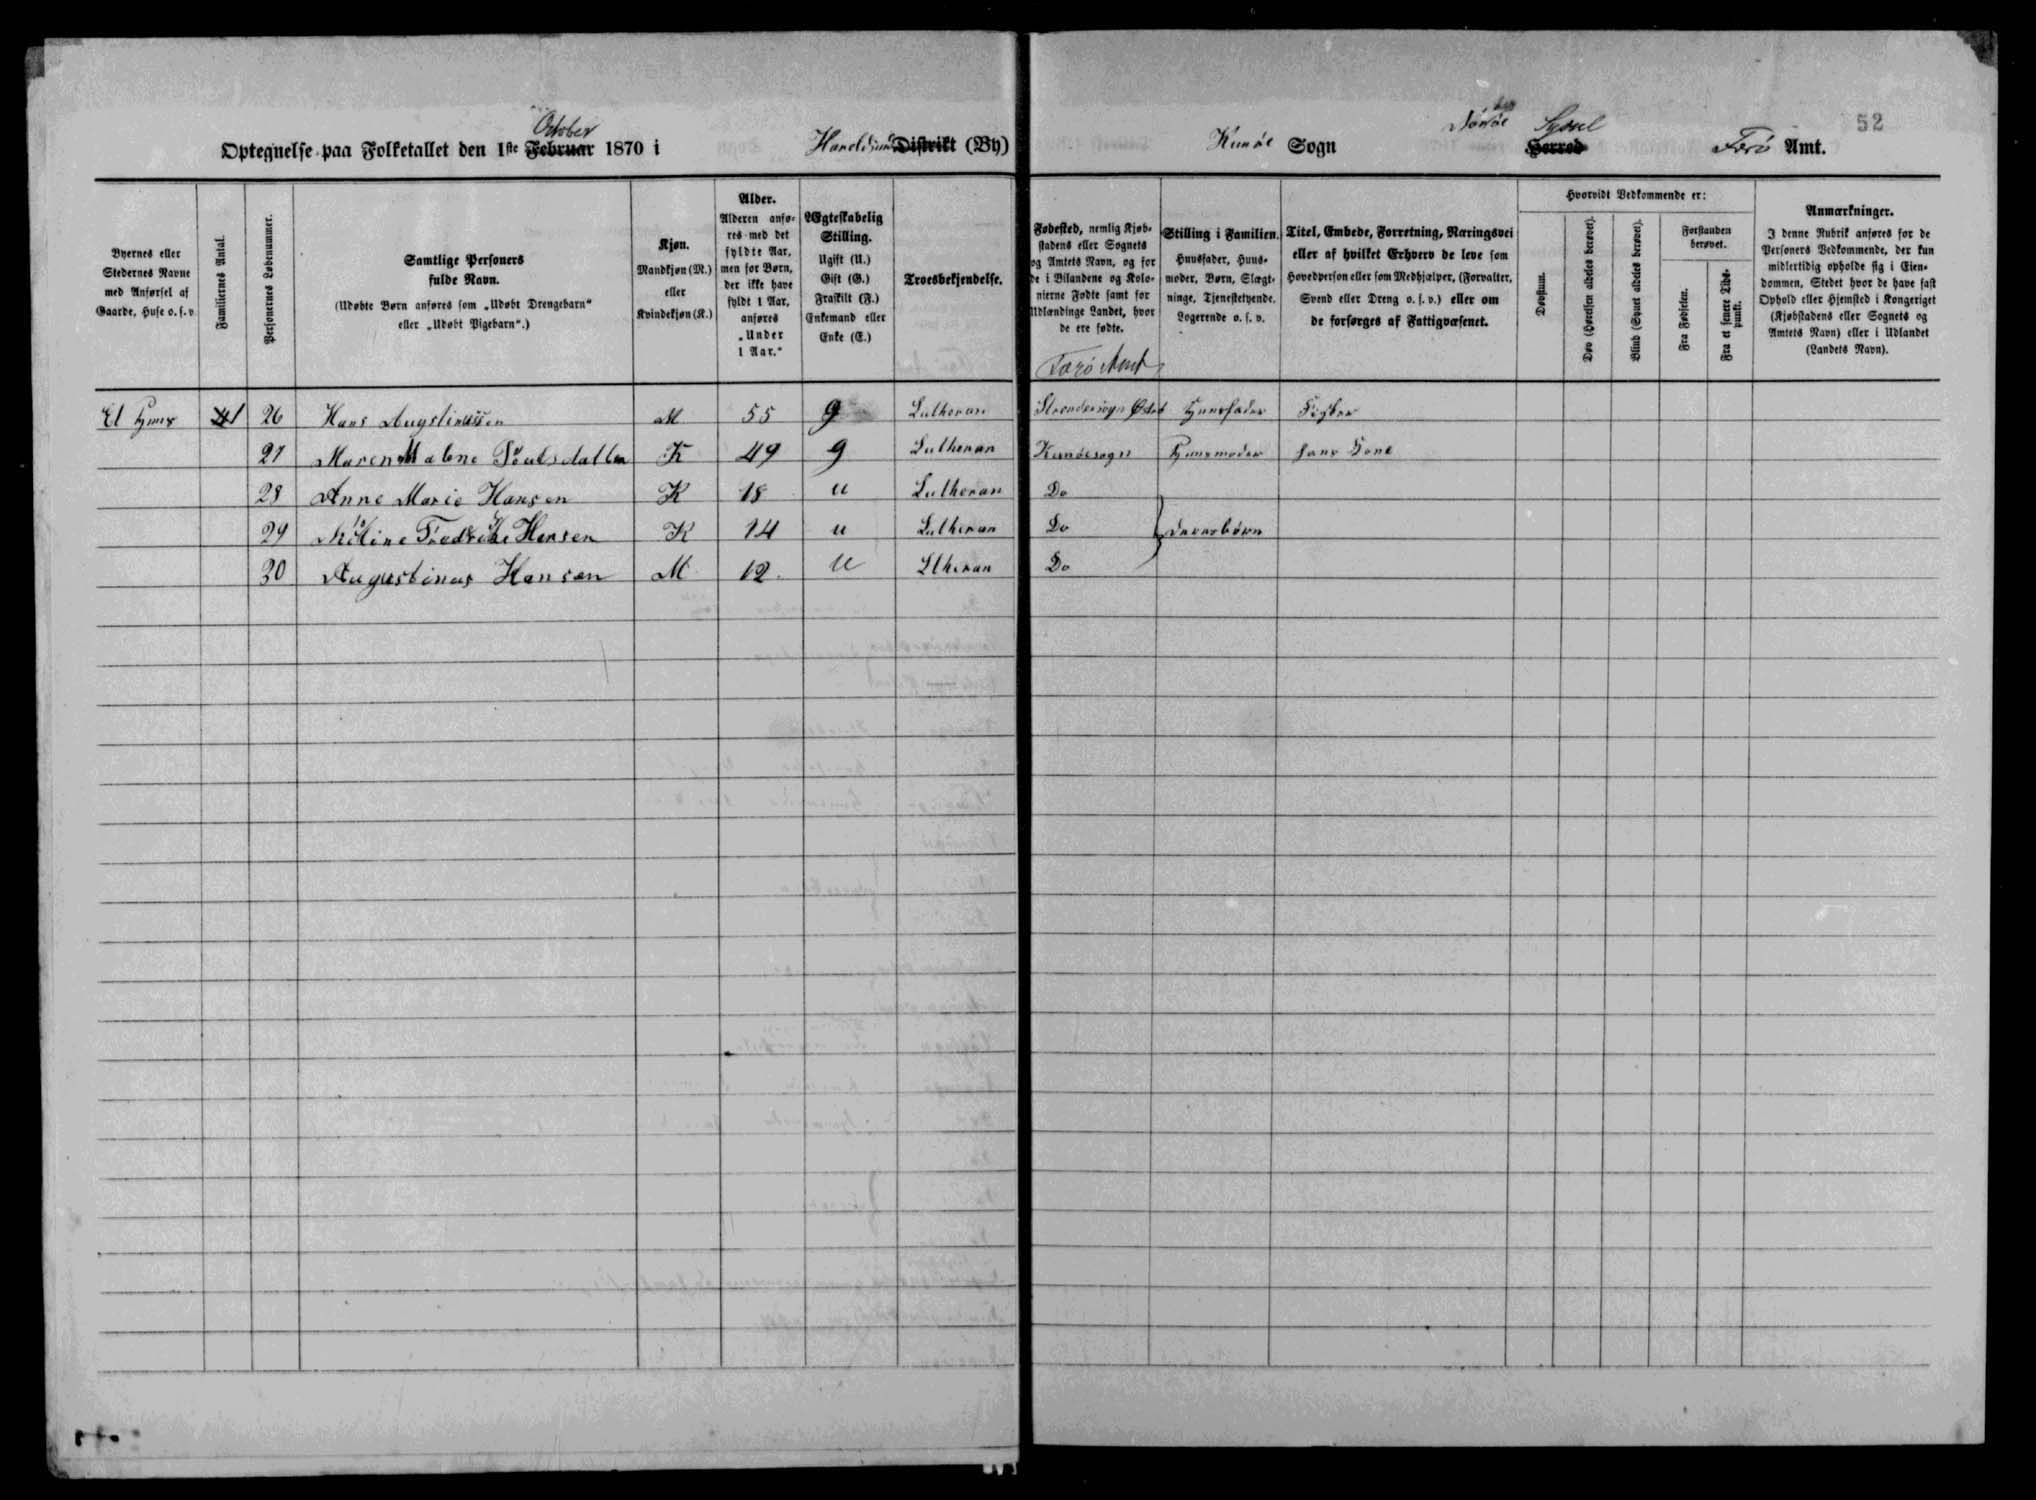 October
Optegnelse paa Folketallet den 1ste Februar 1870 i Haroldsund Distrikt (By)
Byernes eller Stedernes Navne med Anførsel af Gaarde, Huse o. s. v.
Familiernes Antal.
Personernes Løbenummer.
Samtlige Personers fulde Navn.
(Udøbte Børn anføres som „Udøbt Drengebarn“ eller „Udøbt Pigebarn“.)
Kjøn.
Mandkjøn (M.) eller Kvindekjøn (K.)
Alder.
Alderen anføres med det fyldte Aar, men for Børn, der ikke have fyldt 1 Aar, anføres „Under 1 Aar.“
Ægteskabelig Stilling.
Ugift (U.) Gift (G.) Fraskilt (F.) Enkemand eller Enke (E.)
Troesbekjendelse.
Et Huus 1 26 Hans Augustinussen M 55 g Lutheran
27 Maren Malene Poulsdatter K 49 g Lutheran
28 Anne Marie Hansen K 18 u Lutheran
29 Fredrikke Hansen K 14 u Lutheran
30 Augustinus Hansen M 12 u Ltheran
Kunøe Sogn
Norøe Syssel
Herred
Færø Amt.
52
Fødested, nemlig Kjøbstadens eller Sognets og Amtets Navn, og for de i Bilandene og Kolonierne Fødte samt for Udlændinge Landet, hvor de ere fødte.
Færö Amt
Stilling i Familien.
Huusfader, Huusmoder, Børn, Slægtninge, Tjenestetyende, Logerende o. s. v.
Titel, Embede, Forretning, Næringsvei eller af hvilket Erhverv de leve som Hovedperson eller som Medhjælper, (Forvalter, Svend eller Dreng o. s. v.) eller om de forsørges af Fattigvæsenet.
Hvorvidt Vedkommende er:
Døvstum.
Døv (Hørelsen aldeles berøvet).
Blind (Synet aldeles berøvet).
Forstanden berøvet.
Fra Fødselen.
Fra et senere Tidspunkt.
Anmærkninger.
I denne Rubrik anføres for de Personers Vedkommende, der kun midlertidig opholde sig i Eiendommen, Stedet hvor de have fast Ophold eller Hjemsted i Kongeriget (Kjøbstadens eller Sognets og Amtets Navn) eller i Udlandet (Landets Navn).
Strandersogn Huusfader Fisker
Kunøesogn Huusmoder hans Kone
Do
Do deres børn
Do